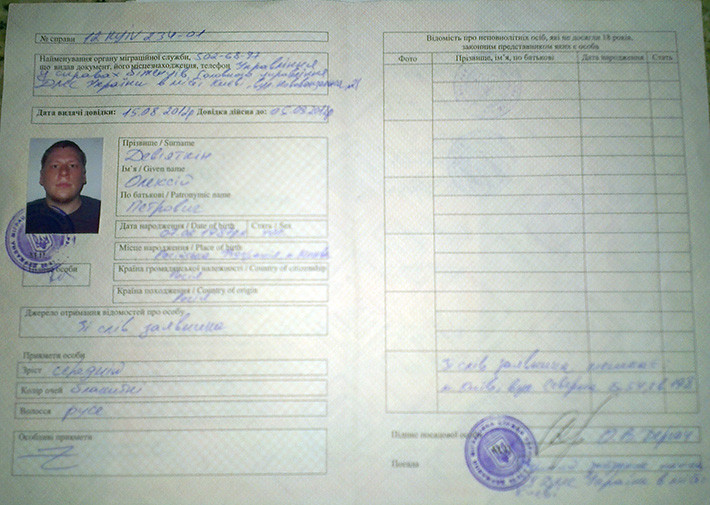 № справи 12 KYIV 234-01
Найменування органу міграційної служби, 502-68-97
що видав документ, його місцезнаходження, телефон Управління
у справах біженців Головного управління
ДМС України в місті Києві, вул.
Дата видачі довідки: 15.08.2012р Довідка дійсна до: 05.09.2012р
Прізвище / Surname
Девіаткін
Ім'я / Given name
Олексій
По батькові / Patronymic name
Петрович
Дата народження / Date of birth Стать / Sex
Місце народження / Place of birth
Підпис особи
Країна громадянської належності / Country of citizenship
Росія
Країна походження / Country of origin
Росія
Джерело отримання відомостей про особу
Зі слів заявника
Прикмети особи
Зріст середній
Колір очей блакитні
Волосся русе
Особливі прикмети
Відомість про неповнолітніх осіб, які не досягли 18 років,
законним представником яких є особа
Фото Прізвище, ім'я, по батькові Дата народження Стать
Зі слів заявника, мешкає:
м. Київ, вул. Северна
Підпис посадової особи
Посада
ДМС України в місті
Києві